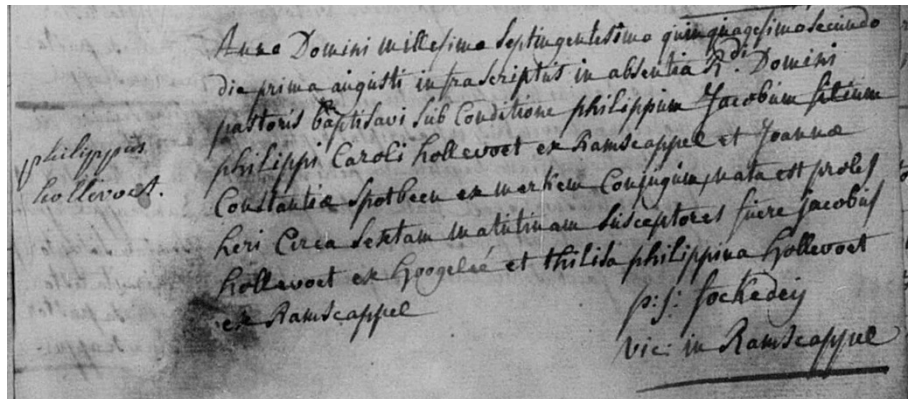 philippus
hollevoet.
Anno Domini millesimo septingentesimo quinquagesimo secundo
die prima augusti infrascriptus in absentia R.di Domini
pastoris baptisavi sub Conditione philippum Jacobum filium
philippi Caroli hollevoet ex Ramscappel et Joannæ
Constantiæ Spotbeen ex merkem Conjugum, nata est proles
heri Circa sextam matutinam susceptores fuere Jacobus
hollevoet ex hoogeleé et thilisa philippina hollevoet
ex Ramscappel
p: j: fockedey
vic: in Ramscappel